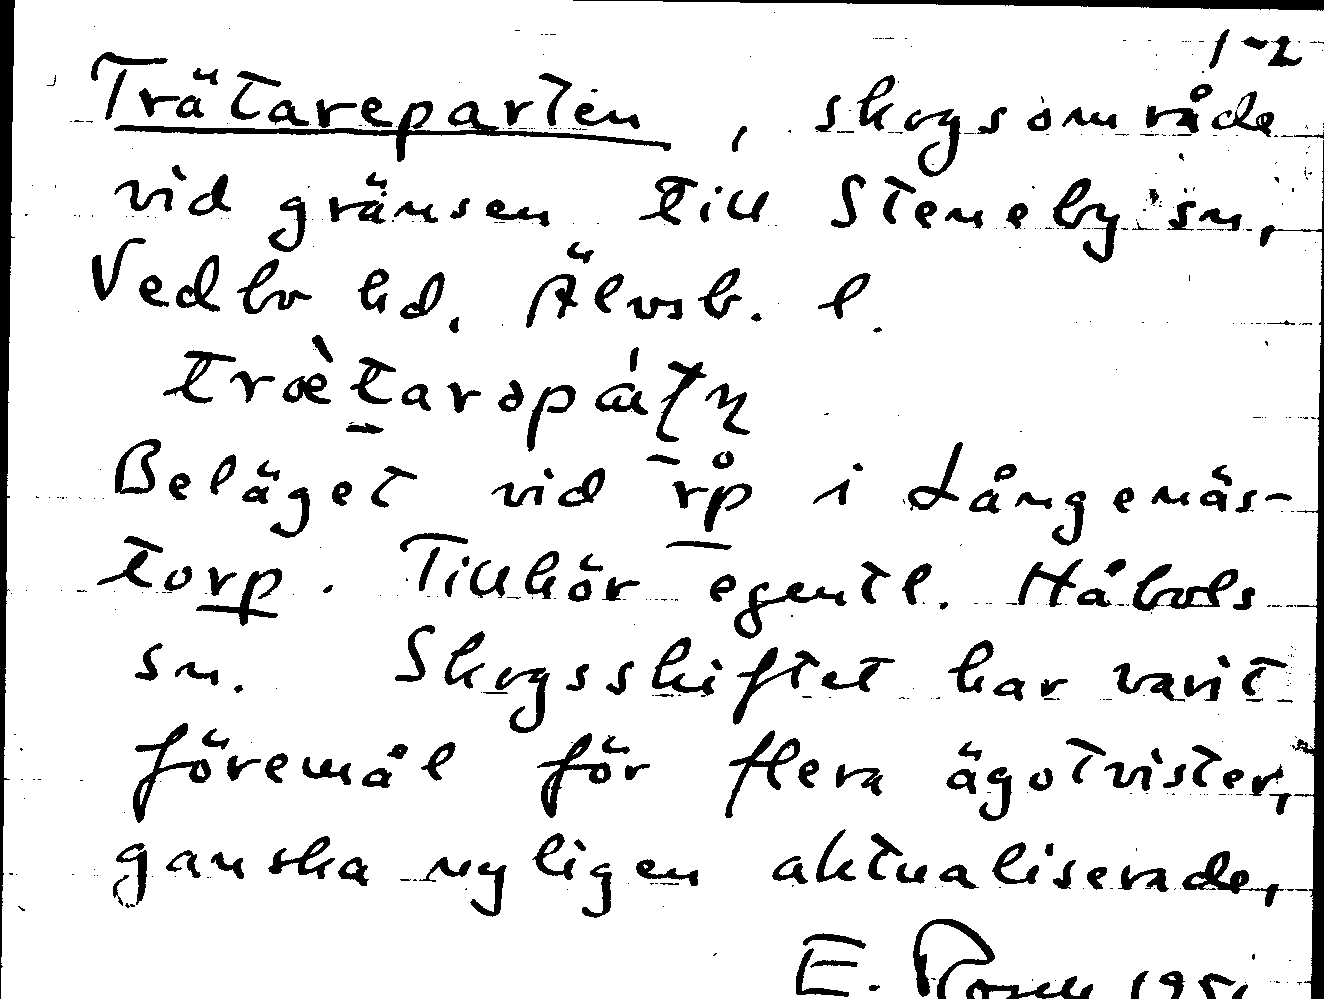 1-2
Trätareparten, skogsområde
vid gränsen till Steneby sn,
Vedbo hd. Älvsb. l.
Beläget vid rp i Långenäs-
torp. Tillhör egentl. Håbols
sn. Skogsskiftet har varit
föremål för flera ägotvister,
ganska nyligen aktualiserade,
E.